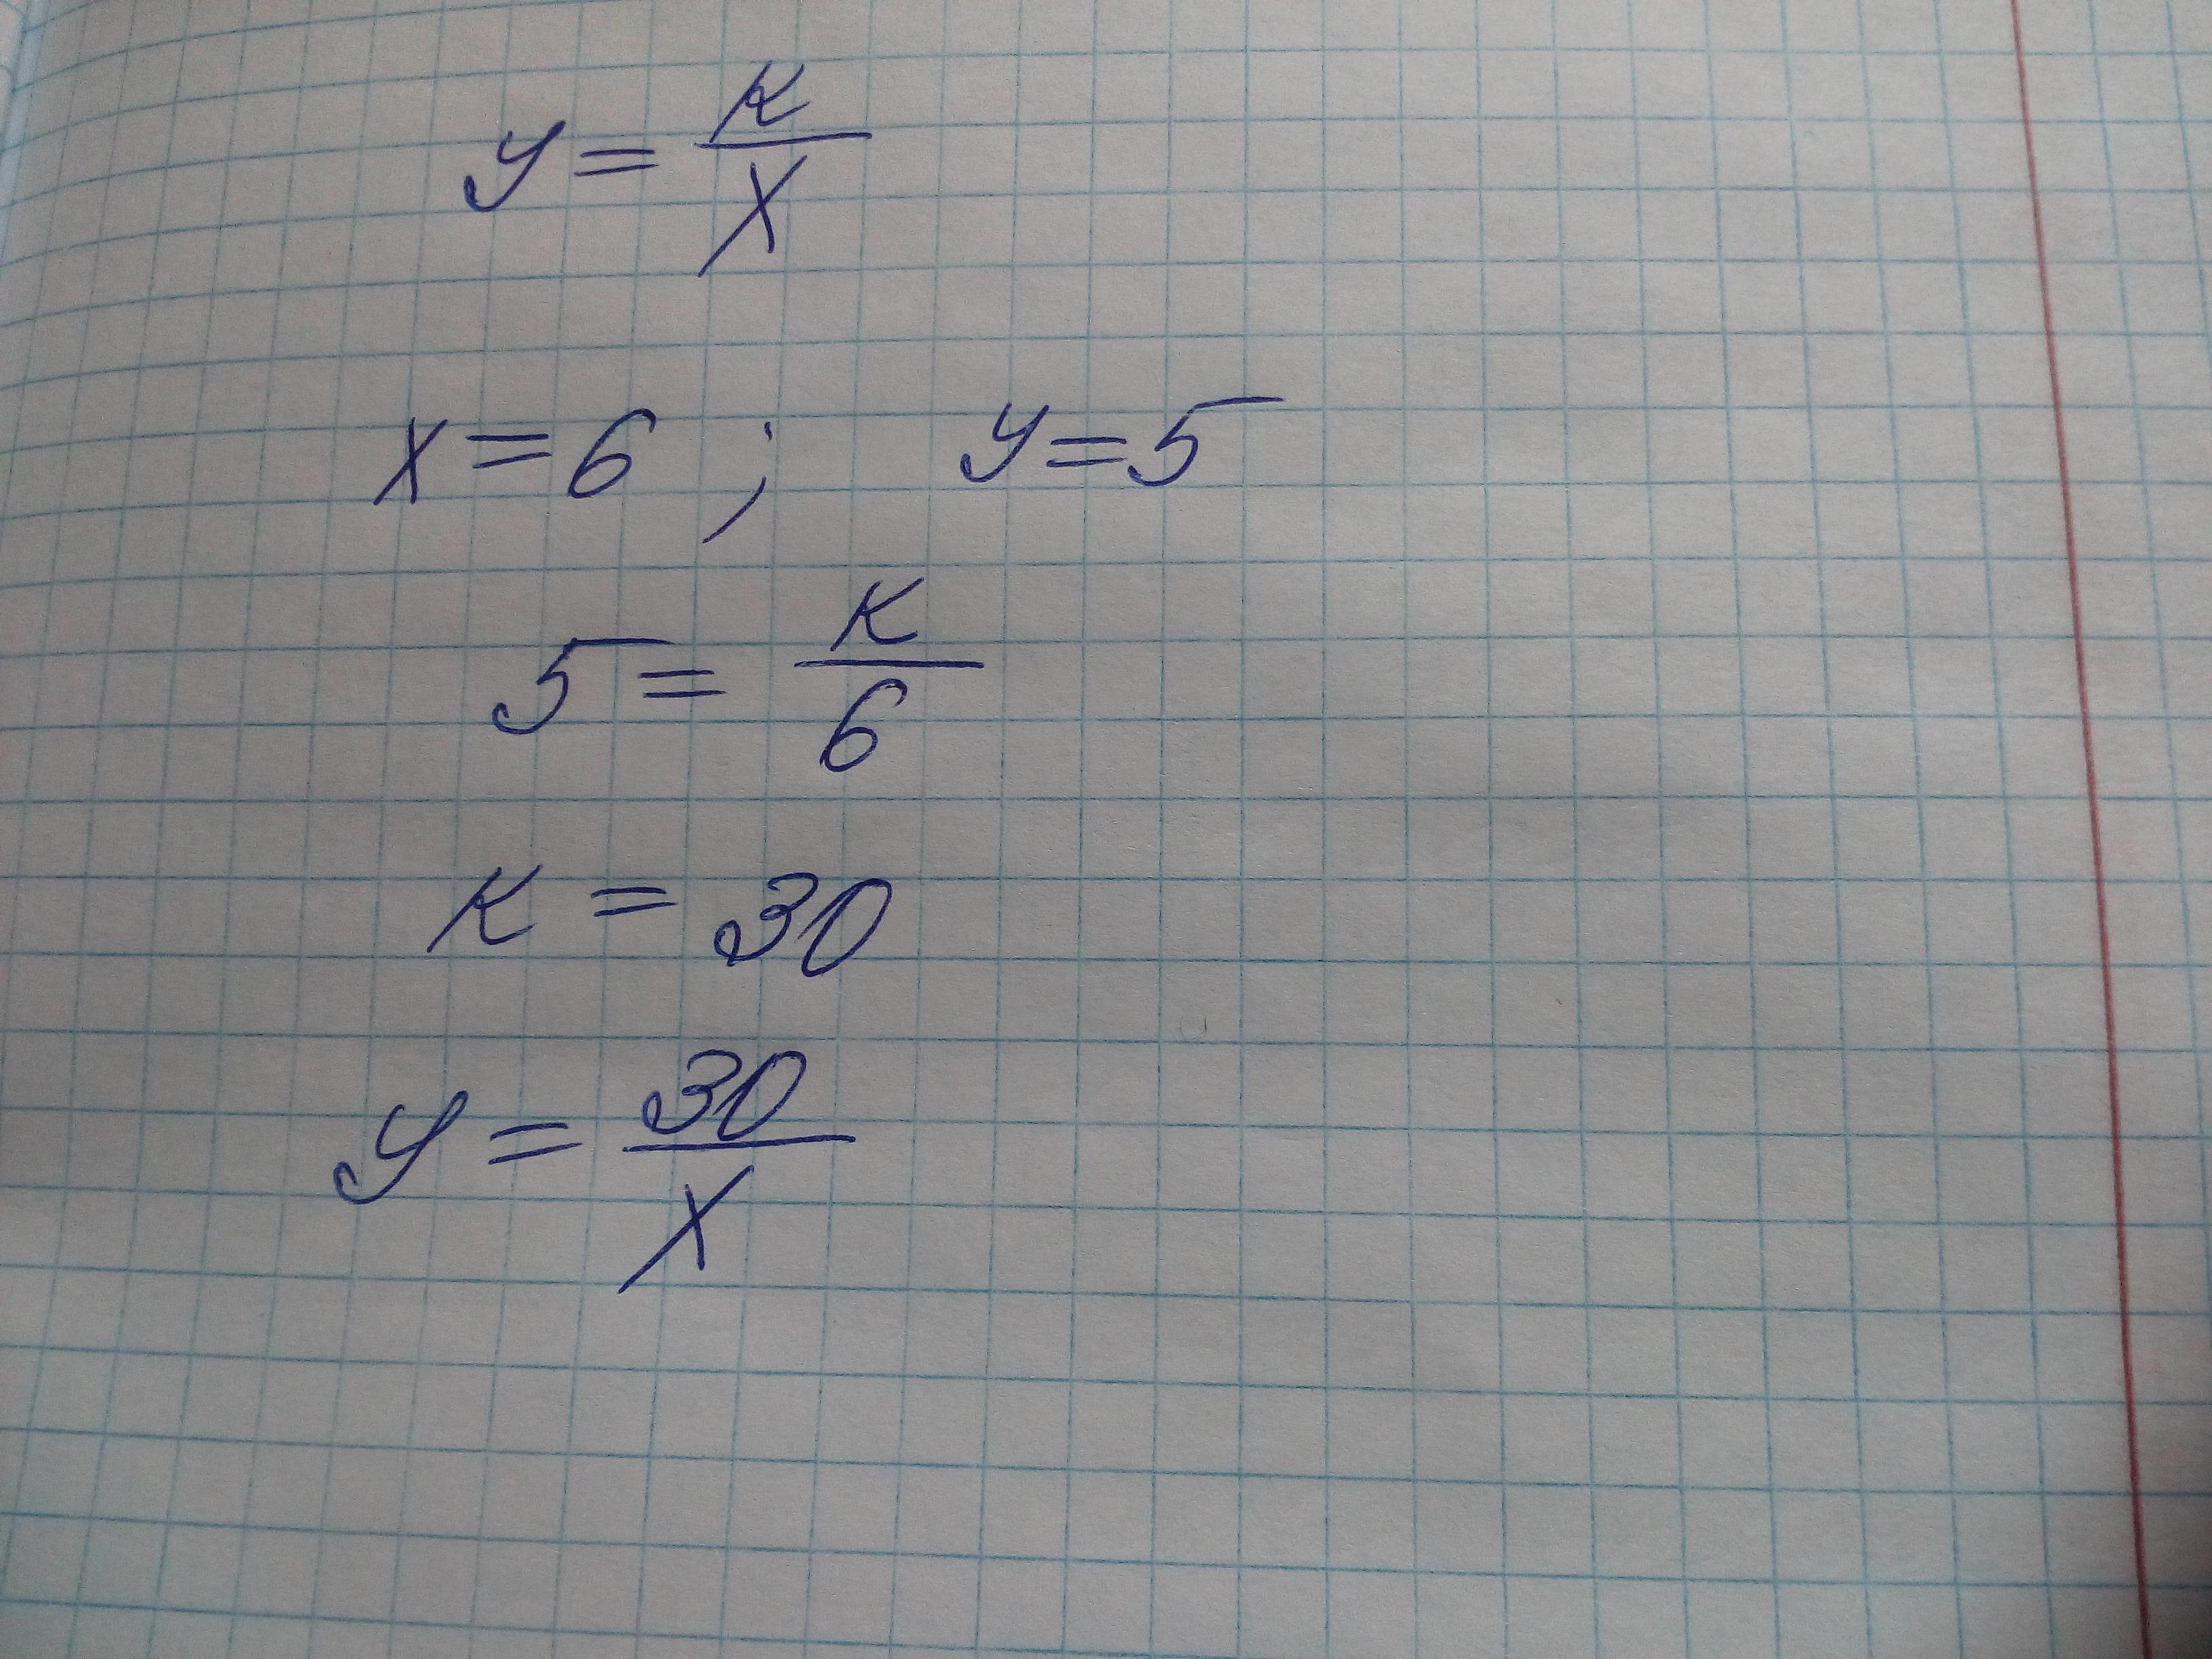 y = к/x
x = 6 ; y = 5
5 = к/6
к = 30
y = 30/x